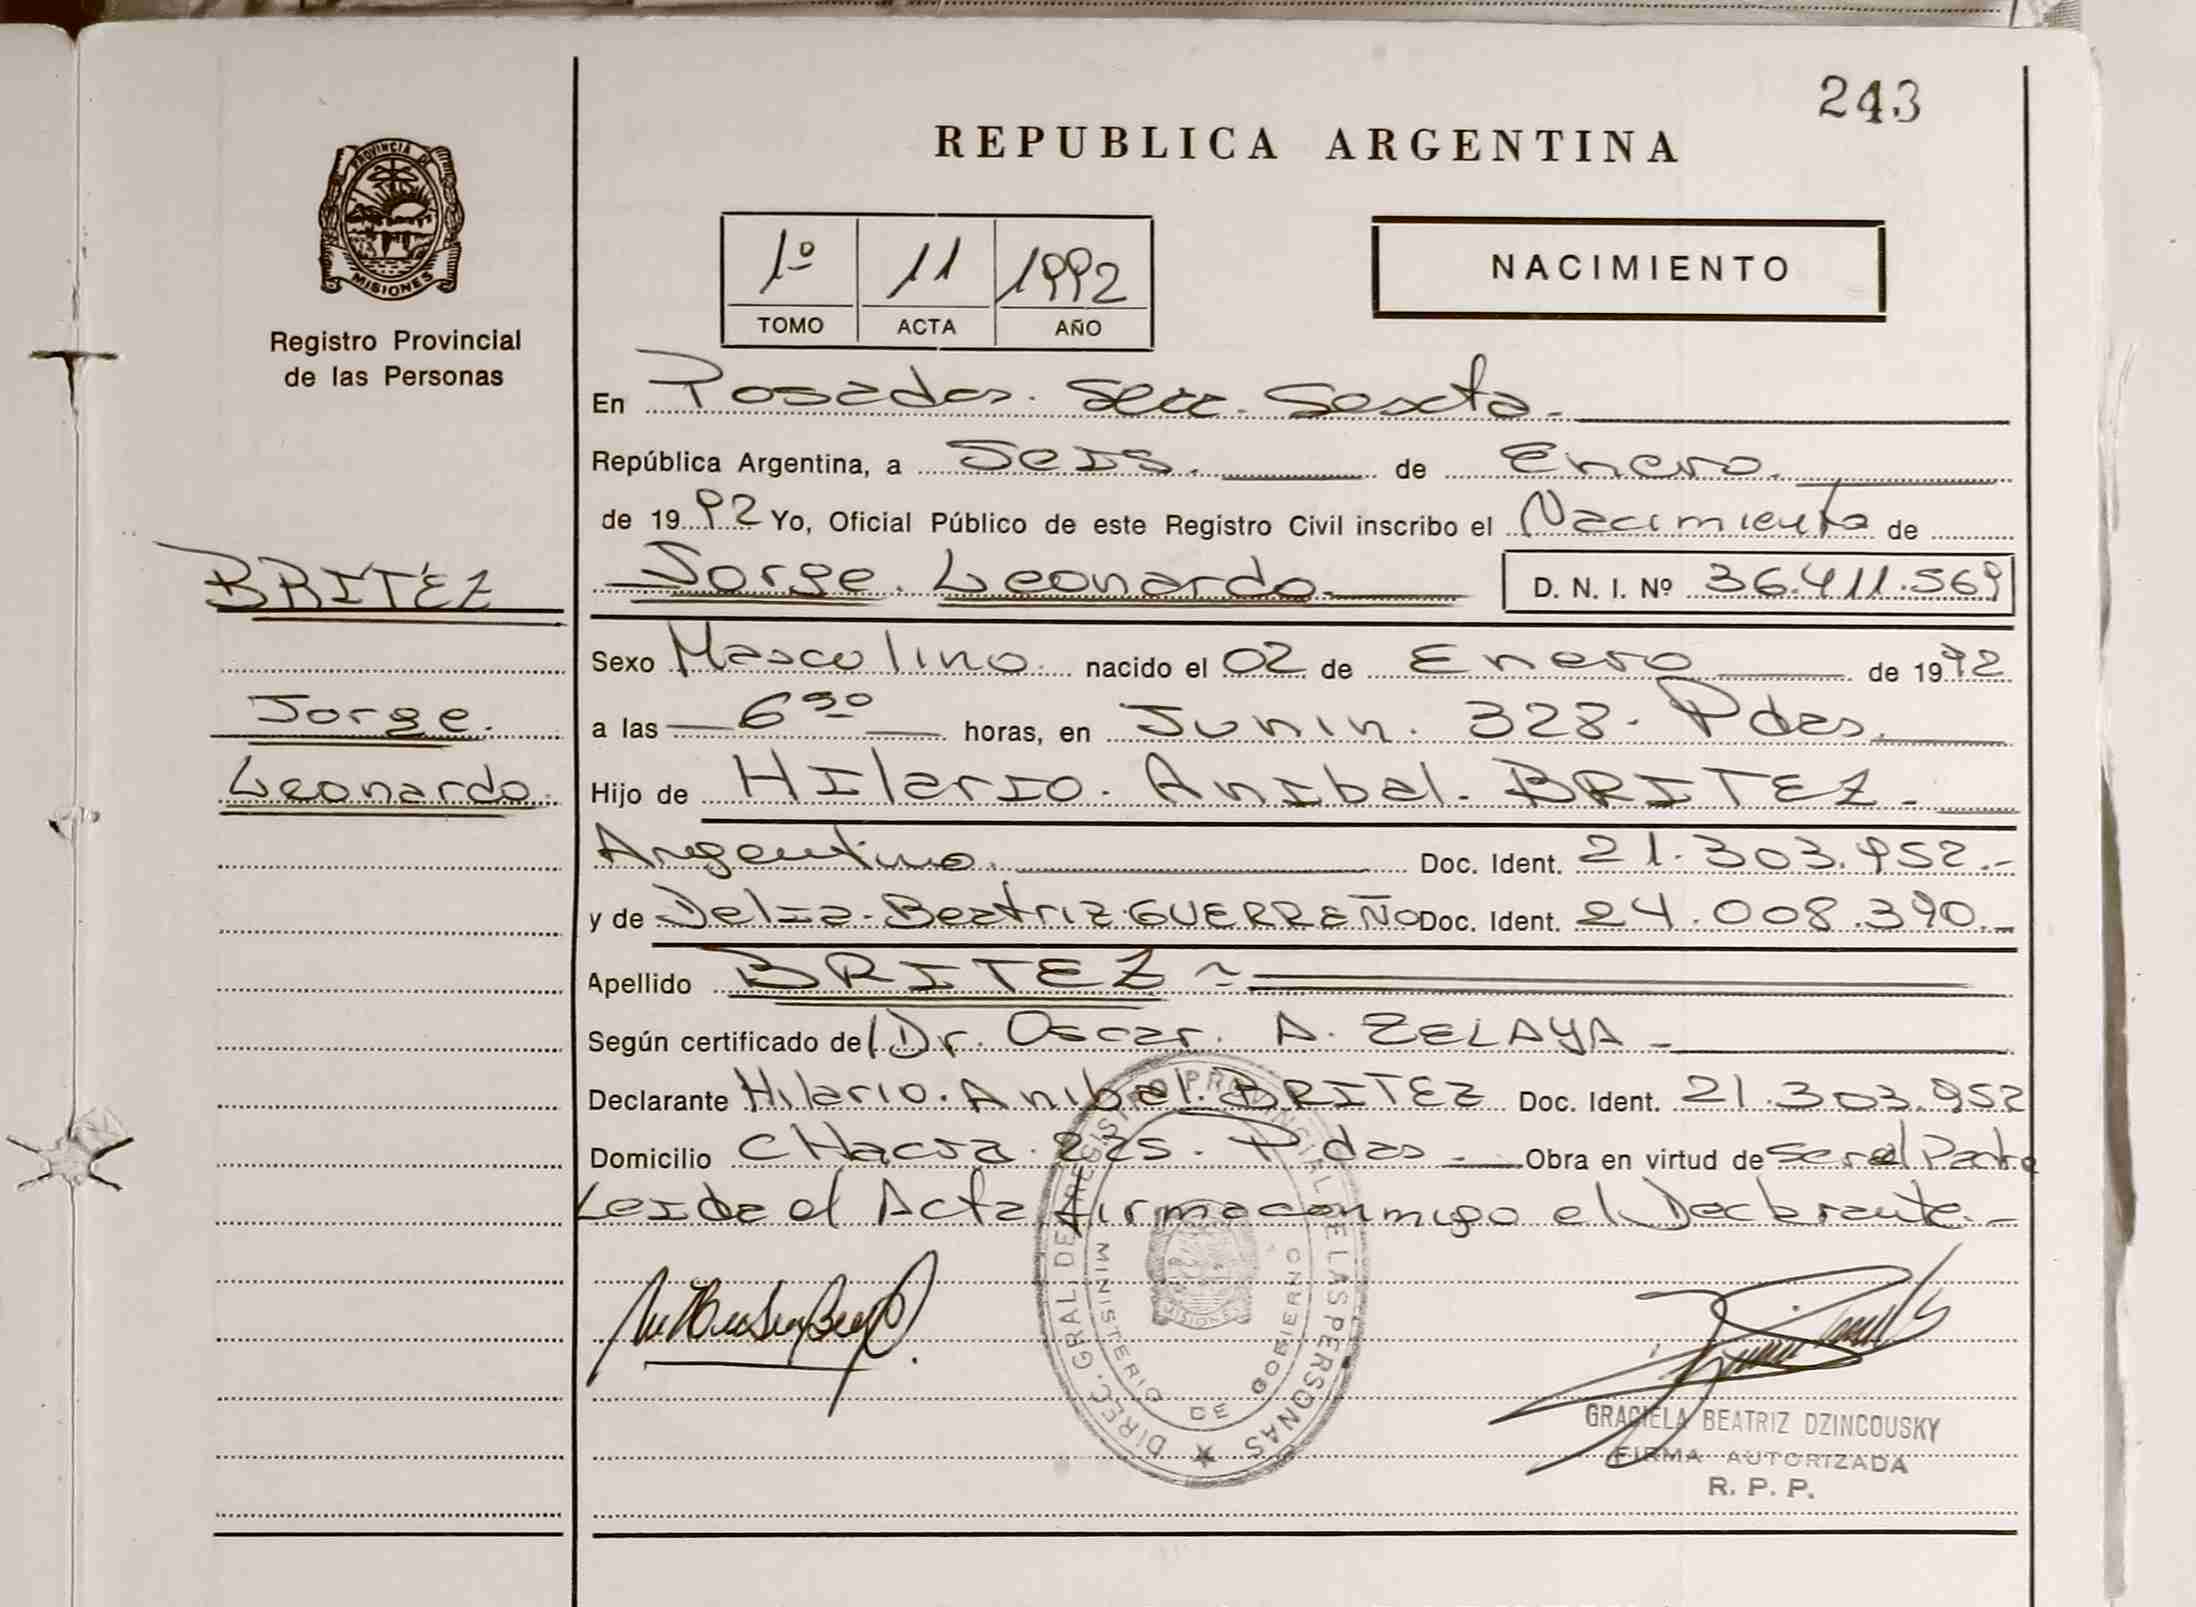 243
REPUBLICA ARGENTINA
PROVINCIA DE
MISIONES
Registro Provincial
de las Personas
1º 11 1992
TOMO ACTA AÑO
NACIMIENTO
En Posadas. Secc. Sexta.
República Argentina, a Seis. de Enero.
de 1992 Yo, Oficial Público de este Registro Civil inscribo el Nacimiento de
Jorge. Leonardo. D. N. I. Nº 36.411.569
BRITEZ
Jorge.
Leonardo.
Sexo Masculino. nacido el 02 de Enero de 1992
a las 6 30 horas, en Junin. 328. Pdas.
Hijo de Hilario. Anibal. BRITEZ.
Argentino. Doc. Ident. 21.303.952.-
y de Delia. Beatriz. GUERREÑO Doc. Ident. 24.008.390.-
Apellido BRITEZ ~
Según certificado del Dr. Oscar. A. ZELAYA -
Declarante Hilario. Anibal. BRITEZ Doc. Ident. 21.303.952
Domicilio CHacra. 225. Pdas. Obra en virtud de ser el Padre
Leida el Acta firma conmigo el Declarante.-
DIREC. GRAL. DE REGISTRO PROVINCIAL DE LAS PERSONAS
MINISTERIO DE GOBIERNO
MISIONES
GRACIELA BEATRIZ DZINCOUSKY
FIRMA AUTORIZADA
R. P. P.